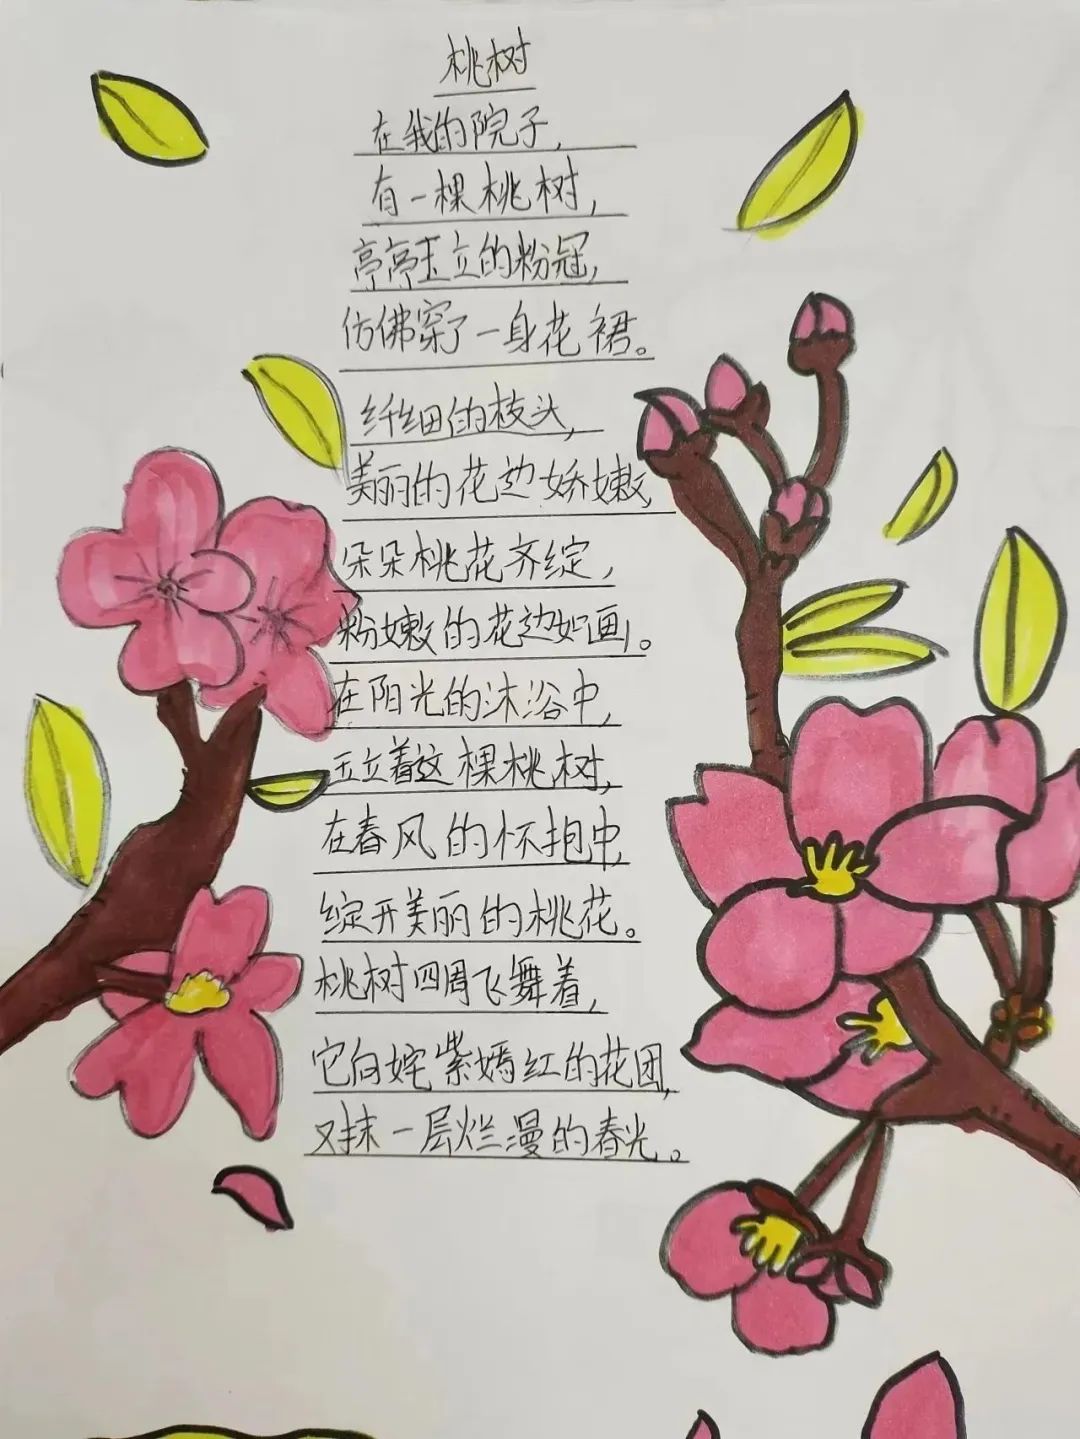 桃树
在我的院子，
有一棵桃树，
亭亭玉立的粉冠，
仿佛穿了一身花裙。
纤细的枝头，
美丽的花边娇嫩，
朵朵桃花齐绽，
粉嫩的花边如画。
在阳光的沐浴中，
玉立着这棵桃树，
在春风的怀抱中，
绽开美丽的桃花。
桃树四周飞舞着，
它向姹紫嫣红的花团，
又抹一层烂漫的春光。